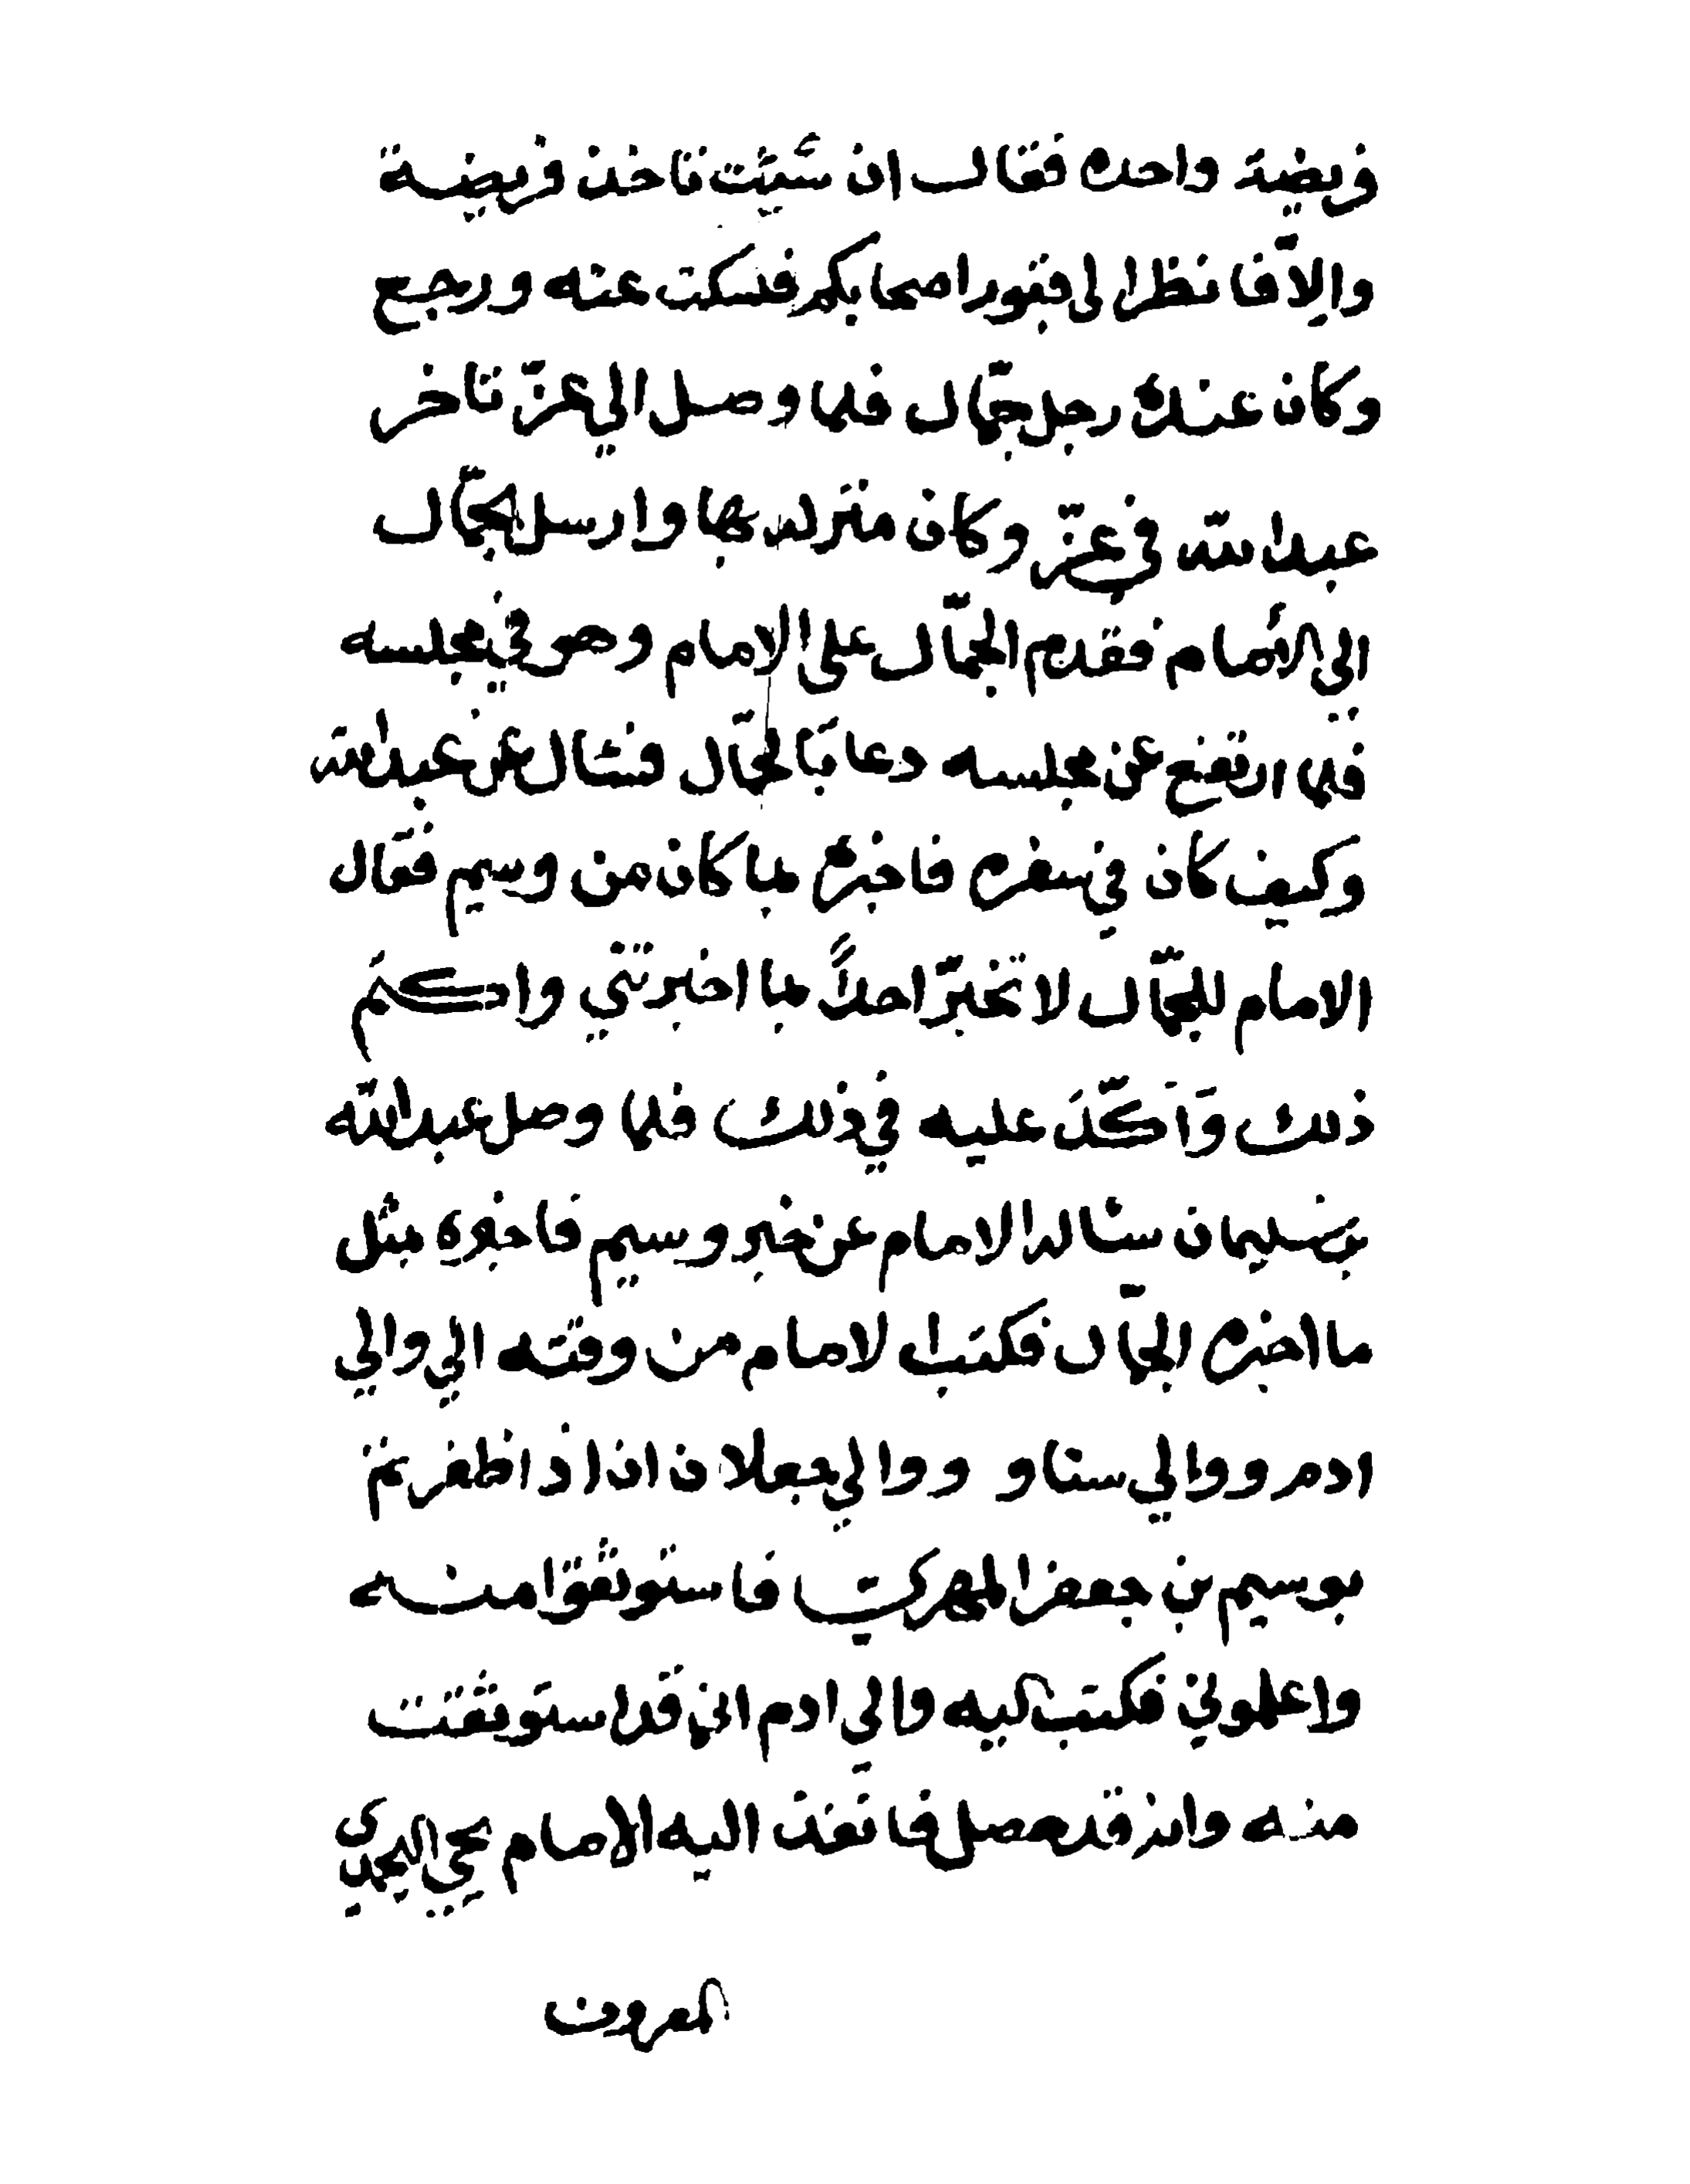 فريضة واحده فقال ان شئت تاخذ فريضة
والاّ فانظر الى قبور اصحابكم فسكت عنه ورجع
وكان عنده رجل جمّال فلما وصل الي عزّ تاخر
عبدالله في عزّ وكان منزله بها وارسل الجمّال
الي الأمام فقدم الجمّال على الامام وهو في مجلسه
فلما ارتفع عن مجلسه دعا بالجمّال فسأل عن عبدالله
وكيف كان في سفره فاخبره بما كان من وسيم فقال
الامام للجمّال لا تخبر احداً بما اخبرتني واكتم
ذلك وَاَكّدَ عليه في ذلك فلما وصل عبدالله
بن سليمان سأله الامام عن خبر وسيم فاخبره بمثل
ما اخبره الجمّال فكتب الامام من وقته الي والي
ادم ووالي سناو ووالي جعلان اذا ظفرتم
بوسيم بن جعفر المهري فاستوثقوا منه
واعلموني فكتب اليه والي ادم اني قد استوثقت
منه وانه قد حصل فانفذ اليه الامام يحي اليحمدي
المعروف